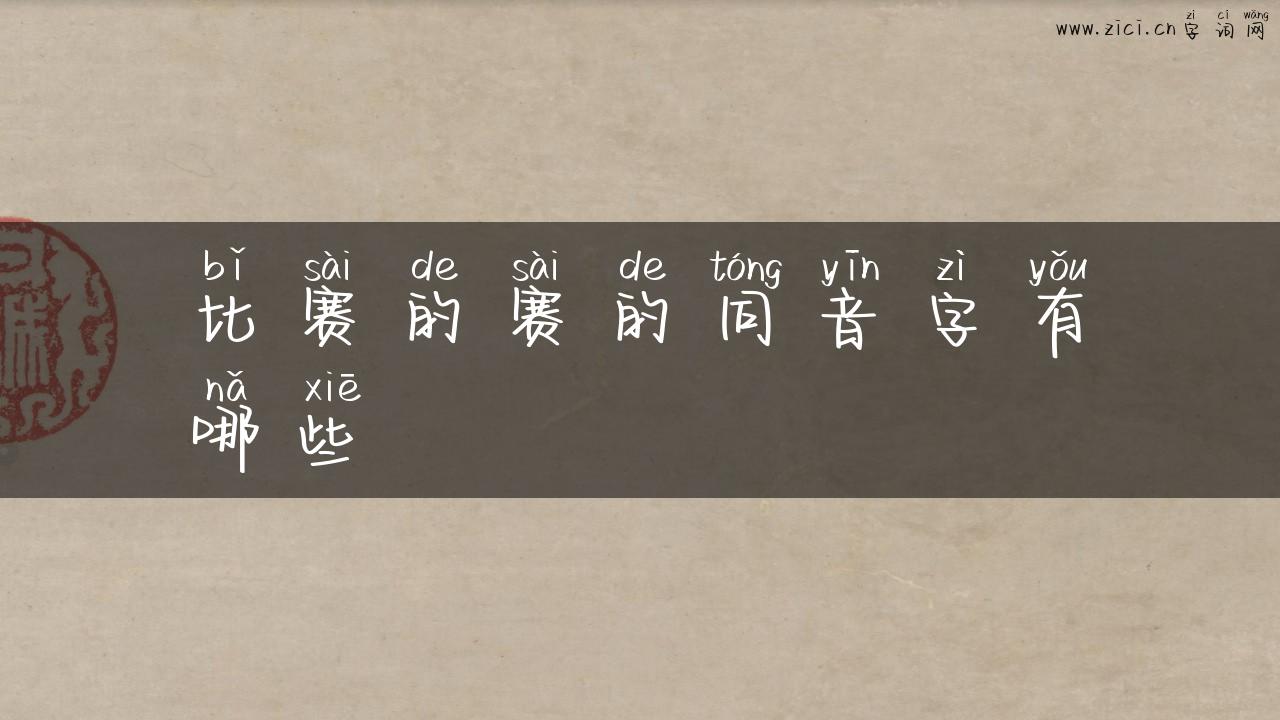 zì cí wǎng
www.zici.cn 字词网
bǐ sài de sài de tóng yīn zì yǒu
比赛的赛的同音字有
nǎ xiē
哪些